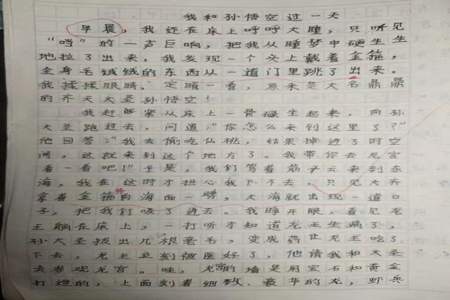 我和孙悟空过一天
早晨，我还在床上呼呼大睡，只听见
“呼”的一声巨响，把我从睡梦中硬生生
地拉了出来，我发现一个头上戴着金箍，
全身毛绒绒的东西从一道门里跳了出来。
我揉揉眼睛，定睛一看，原来是大名鼎鼎
的齐天大圣孙悟空！
我赶紧从床上一骨碌坐起来，向孙
大圣跑过去，问道：“你怎么来到这里了？”
他回答：“我去偷吃仙桃，结果掉进了时空
河，这就来到这个地方了。我带你去龙宫
看一看吧！”于是，我们驾着筋斗云来到东
海，我在这时才担心我下不去，只见大圣
拿着金箍向海面一劈，大海就出现一道口
子，把我们吸了进去。我睁开眼，看见龙
王躺在床上，一打听才知道龙王生病了，
孙大圣拔出几根毫毛，变成药让龙王吃了
下去，龙王立刻被医好了，他请我和大圣
去参观龙宫。哇，龙宫的墙是用宝石和黄金
打造的，上面刻着 豪华的龙，虾兵